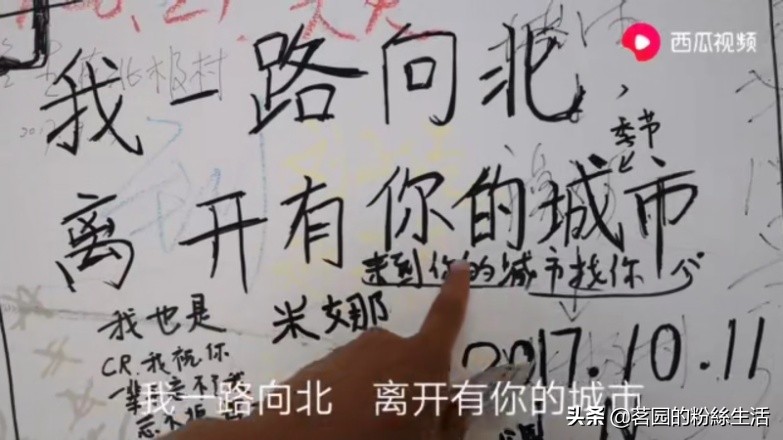 西瓜视频
北极村
我一路向北,
季节
离开有你的城市
来到你的城市找你
我也是
米娜
CR.我祝你
2017.10.11
我一路向北 离开有你的城市
头条 @茗园的粉絲生活